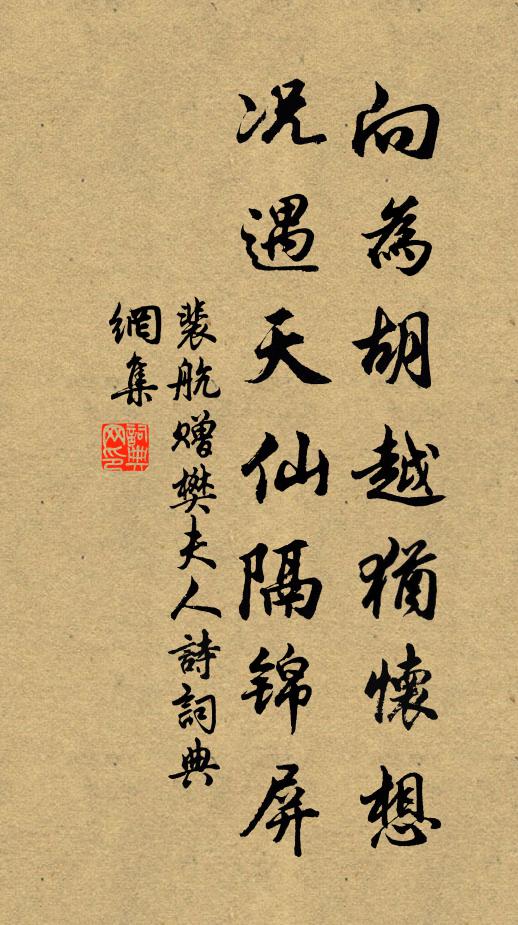 向為胡越猶懷想
况遇天仙隔锦屏
裴航赠樊夫人詩詞典
網集
詞典网印